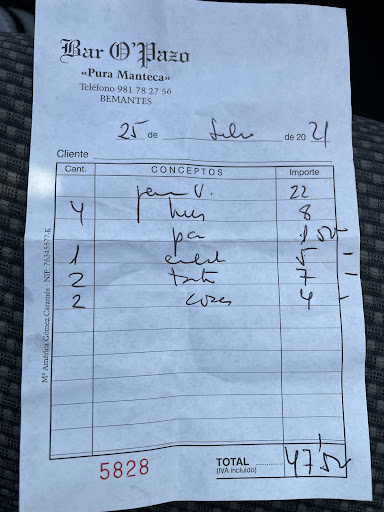 Bar O'Pazo
«Pura Manteca»
Teléfono 981 78 27 56
BEMANTES
25 de Julio de 20 21
Cliente
Cant. CONCEPTOS Importe
22
4 8
pan 1'50
1 5
2 7
2 4
TOTAL (IVA incluido) 47'50
5828
Mª América Gómez Caramés - NIF: 76345577-K